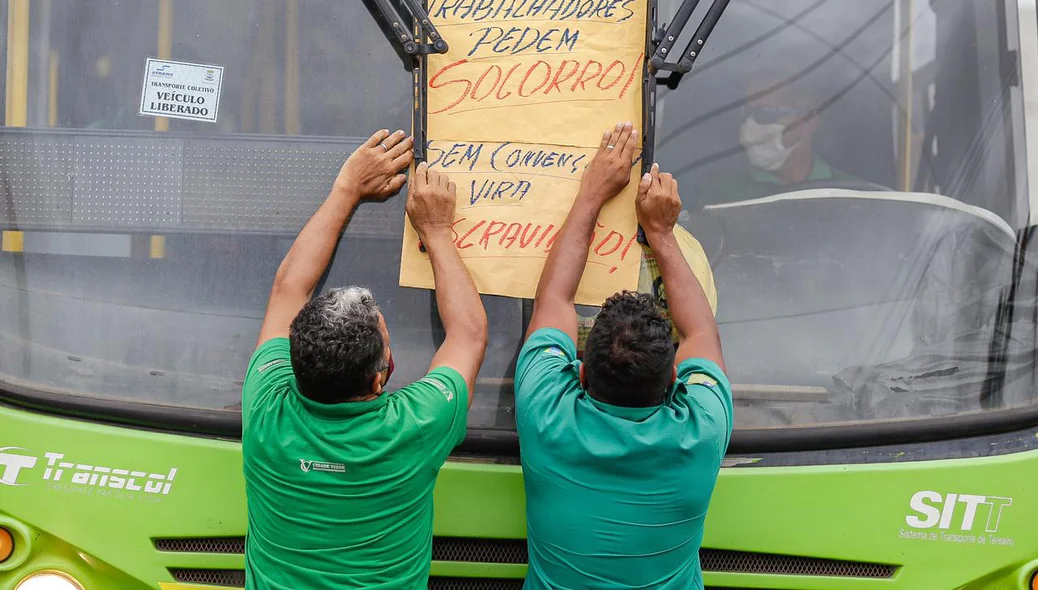 TRABALHADORES
PEDEM
SOCORRO!
SEM CONVENÇ
VIRA
SCRAVI ÃO!
STRANS
TRANSPORTE COLETIVO
VEÍCULO
LIBERADO
CIDADE VERDE
Transcol
SITT
Sistema de Transporte de Teresina